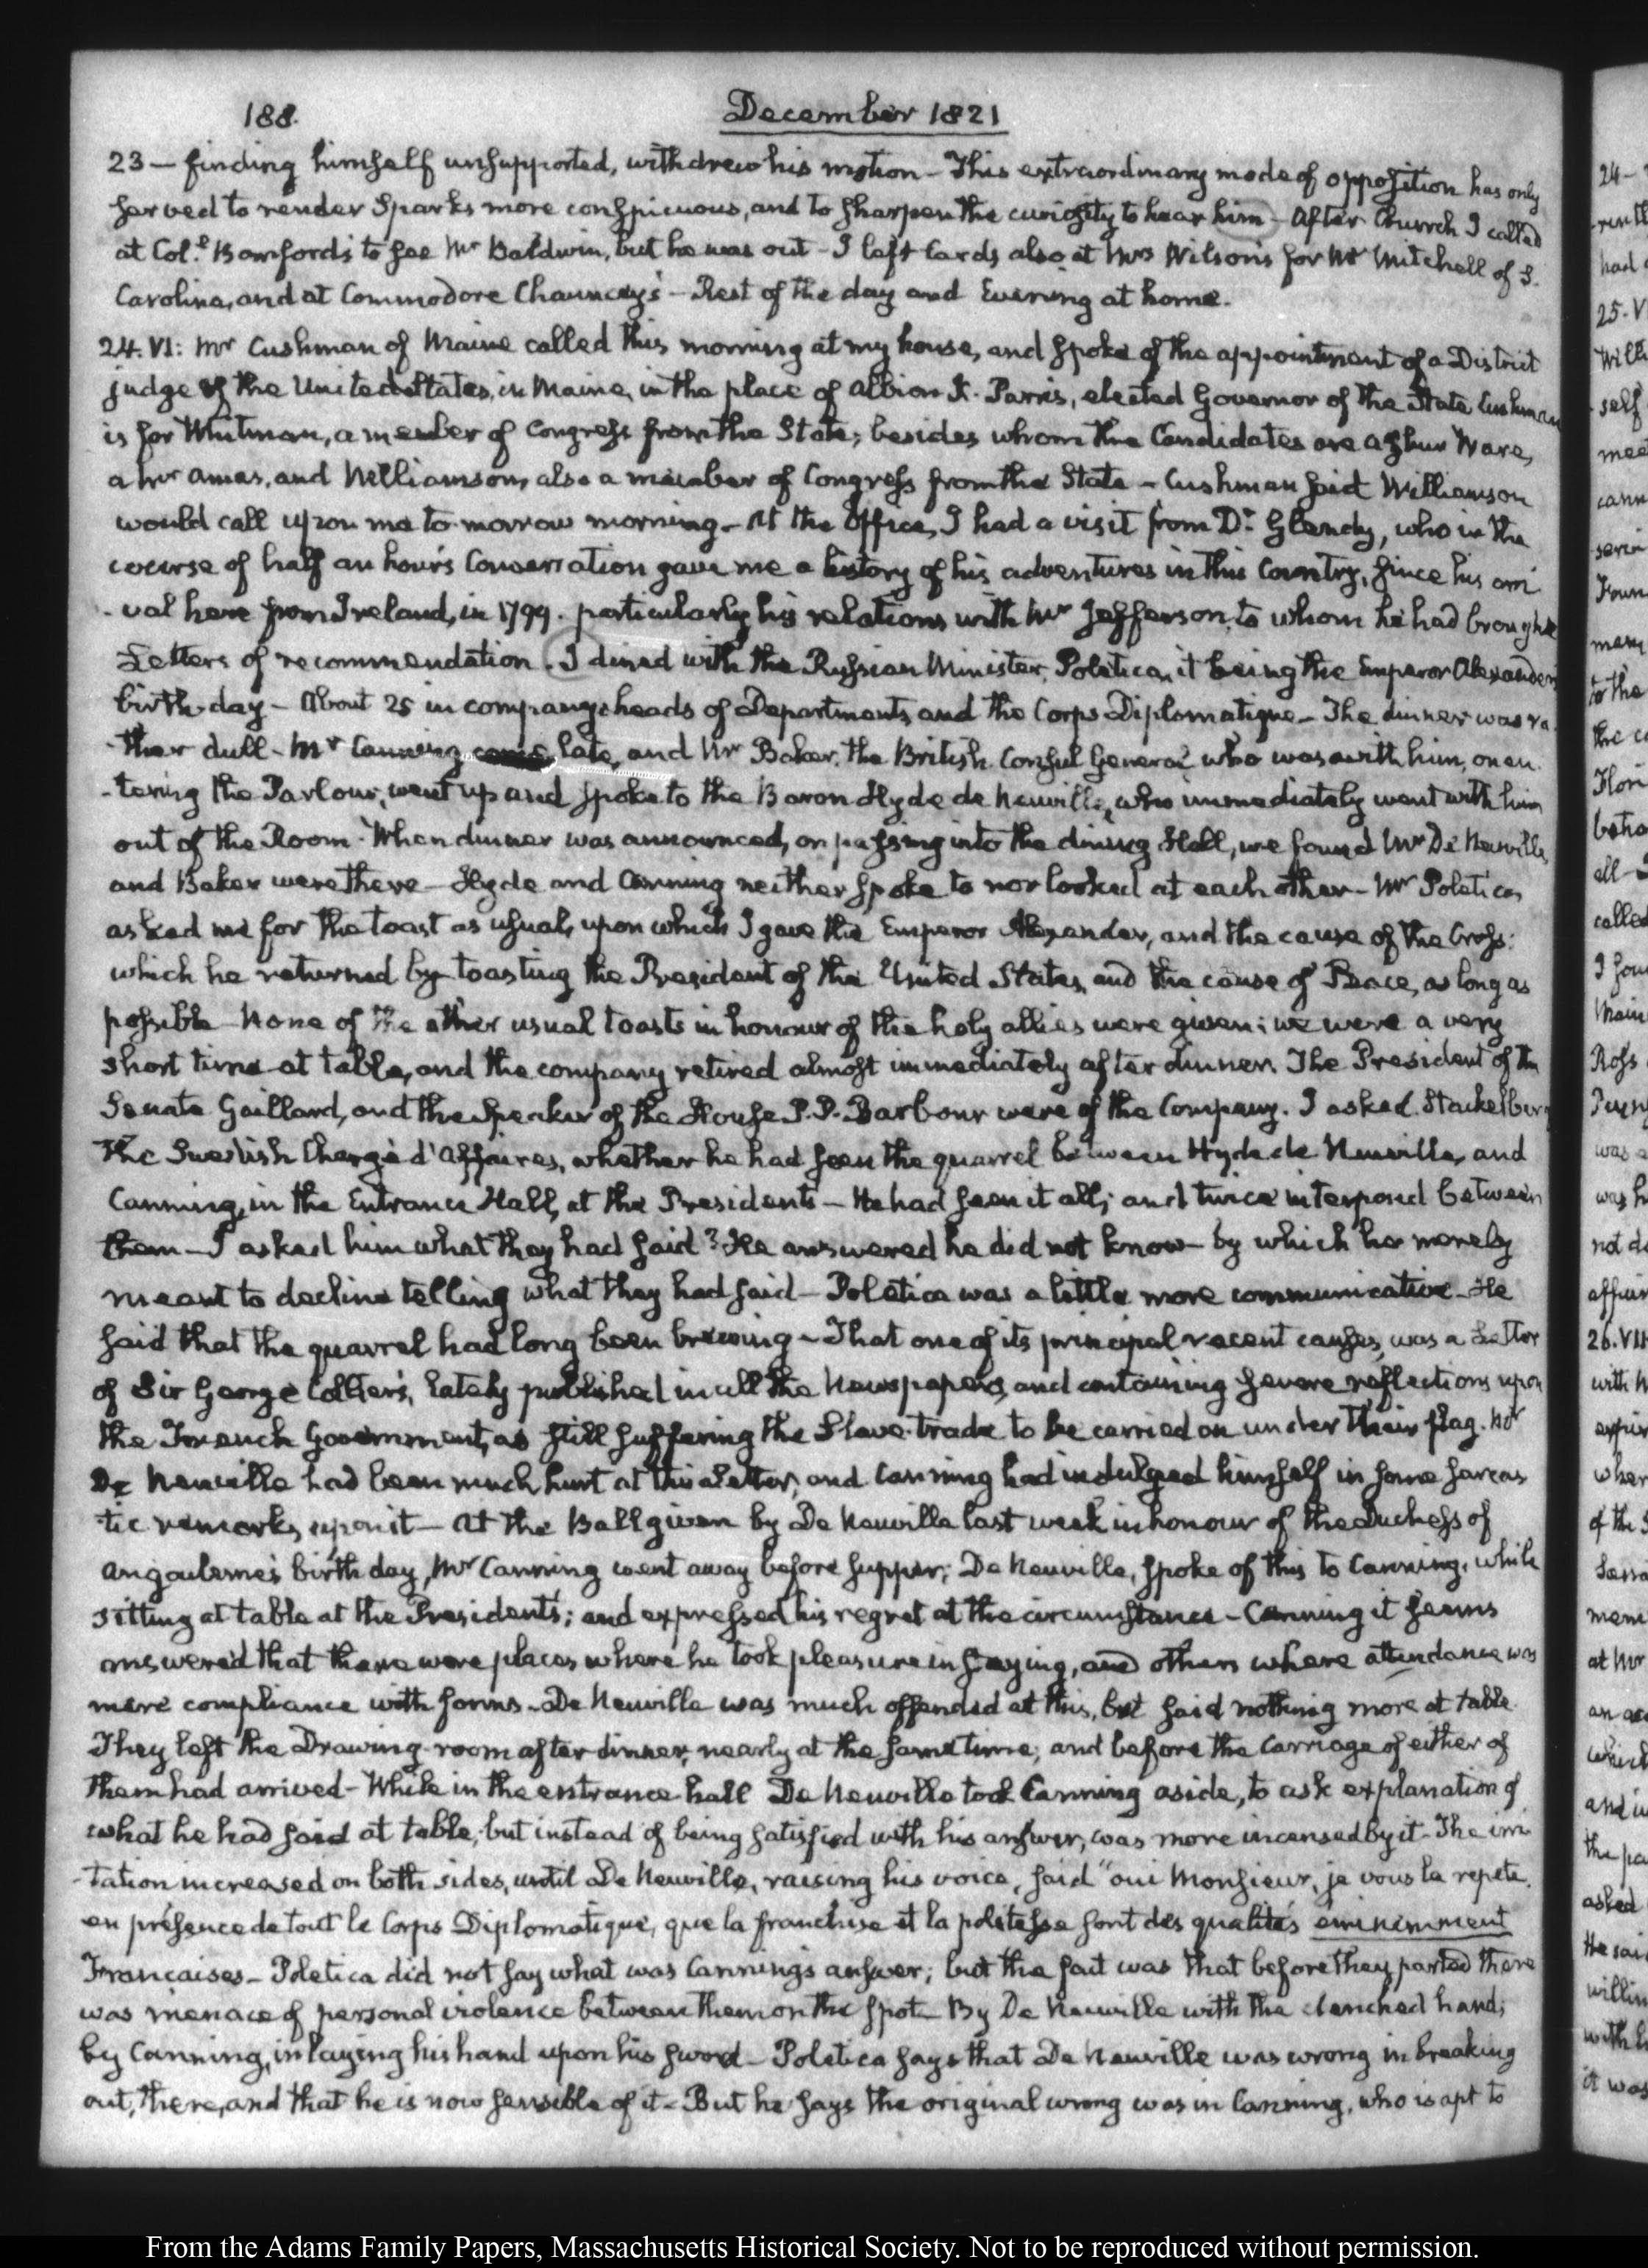 188.
December 1821
23 — finding himself unsupported, withdrew his motion — This extraordinary mode of opposition has only
served to render Sparks more conspicuous, and to sharpen the curiosity to hear him — After Church I called
at Col.l Bomfords to see Mr Baldwin, but he was out — I left Cards also at Mrs Wilson's for Mr Mitchell of S.
Carolina, and at Commodore Chauncey's — Rest of the day and Evening at home.
24. VI: Mr Cushman of Maine called this morning at my house, and spoke of the appointment of a District
judge of the United States, in Maine, in the place of Albion K. Parris, elected Governor of the State Cushman
is for Whitman, a member of Congress from the State; besides whom the Candidates are Ashur Ware,
a Mr Ames, and Williamson, also a member of Congress from the State — Cushman said Williamson
would call upon me to-morrow morning — At the Office, I had a visit from Dr Glendy, who in the
course of half an hour's Conversation gave me a history of his adventures in this Country, since his arri
-val here from Ireland, in 1799. particularly his relations with Mr Jefferson, to whom he had brought
Letters of recommendation. I dined with the Russian Minister, Poletica, it being the Emperor Alexander's
birth-day — About 25 in company; heads of Departments and the Corps Diplomatique — The dinner was ra
-ther dull — Mr Canning came late, and Mr Baker, the British Consul General who was with him, on en
-tering the Parlour, went up and spoke to the Baron Hyde de Neuville, who immediately went with him
out of the Room — When dinner was announced, on passing into the dining Hall, we found Mr De Neuville,
and Baker were there — Hyde and Canning neither spoke to nor looked at each other — Mr Poletica,
asked me for the toast as usual, upon which I gave the Emperor Alexander, and the cause of the Cross:
which he returned by toasting the President of the United States, and the cause of Peace, as long as
possible — None of the other usual toasts in honour of the holy allies were given; we were a very
short time at table, and the company retired almost immediately after dinner. The President of the
Senate Gaillard, and the Speaker of the House P. P. Barbour were of the Company. I asked Stackelberg
the Swedish Chargé d'Affaires, whether he had seen the quarrel between Hyde de Neuville, and
Canning, in the Entrance Hall, at the Presidents — He had seen it all; and twice interposed between
them — I asked him what they had said? He answered he did not know — by which he merely
meant to decline telling what they had said — Poletica was a little more communicative — He
said that the quarrel had long been brewing — That one of its principal recent causes, was a Letter
of Sir George Collier's, lately published in all the Newspapers, and containing severe reflections upon
the French Government, as still suffering the Slave-trade to be carried on under their flag. Mr
De Neuville had been much hurt at this Letter, and Canning had indulged himself in some sarcas
tic remarks, upon it — At the Ball given by De Neuville last week in honour of the Duchess of
Angouleme's birth day, Mr Canning went away before supper; De Neuville, spoke of this to Canning, while
sitting at table at the Presidents; and expressed his regret at the circumstance — Canning it seems
answered that there were places where he took pleasure in staying, and others where attendance was
mere compliance with forms — De Neuville was much offended at this, but said nothing more at table.
They left the Drawing-room after dinner, nearly at the same time; and before the Carriage of either of
them had arrived — While in the entrance hall De Neuville took Canning aside, to ask explanation of
what he had said at table; but instead of being satisfied with his answer, was more incensed by it — The irri
-tation increased on both sides, until De Neuville, raising his voice, said "oui Monsieur, je vous la repete,
en présence de tout le Corps Diplomatique, que la franchise et la politesse sont des qualités eminemment
Francaises — Poletica did not say what was Canning's answer; but the fact was that before they parted there
was menace of personal violence between them on the spot — By De Neuville with the clenched hand;
by Canning, in laying his hand upon his sword — Poletica says that De Neuville was wrong in breaking
out, there, and that he is now sensible of it — But he says the original wrong was in Canning, who is apt to
From the Adams Family Papers, Massachusetts Historical Society. Not to be reproduced without permission.